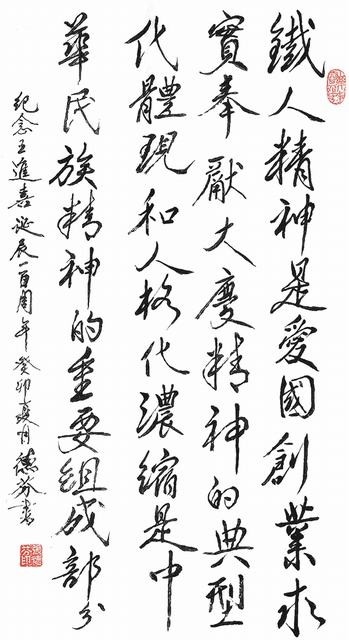 鐵人精神是愛國創業求
實奉獻大慶精神的典型
代體現和人格代濃縮是中
華民族精神的重要組成部分
紀念王進喜誕辰一百周年癸卯夏月德芬書